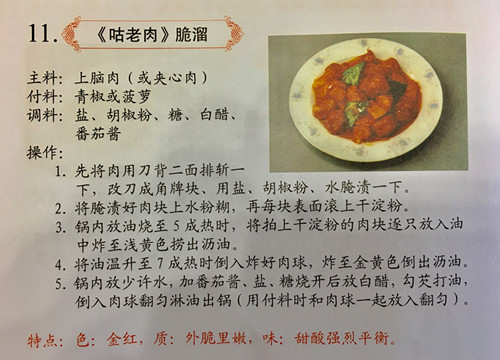 11. 《咕老肉》脆溜
主料：上脑肉（或夹心肉）
付料：青椒或菠萝
调料：盐、胡椒粉、糖、白醋、
番茄酱
操作：
1. 先将肉用刀背二面排斩一
下，改刀成角牌块、用盐、胡椒粉、水腌渍一下。
2. 将腌渍好肉块上水粉糊，再每块表面滚上干淀粉。
3. 锅内放油烧至5成热时，将拍上干淀粉的肉块逐只放入油
中炸至浅黄色捞出沥油。
4. 将油温升至7成热时倒入炸好肉球，炸至金黄色倒出沥油。
5. 锅内放少许水，加番茄酱、盐、糖烧开后放白醋，勾芡打油，
倒入肉球翻匀淋油出锅（用付料时和肉球一起放入翻匀）。
特点：色：金红，质：外脆里嫩，味：甜酸强烈平衡。